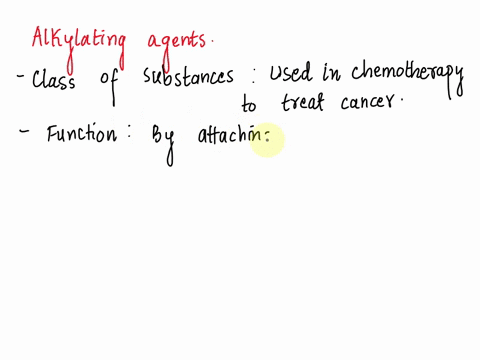 Alkylating agents.
- Class of substances : Used in chemotherapy
to treat cancer.
- Function : By attachin